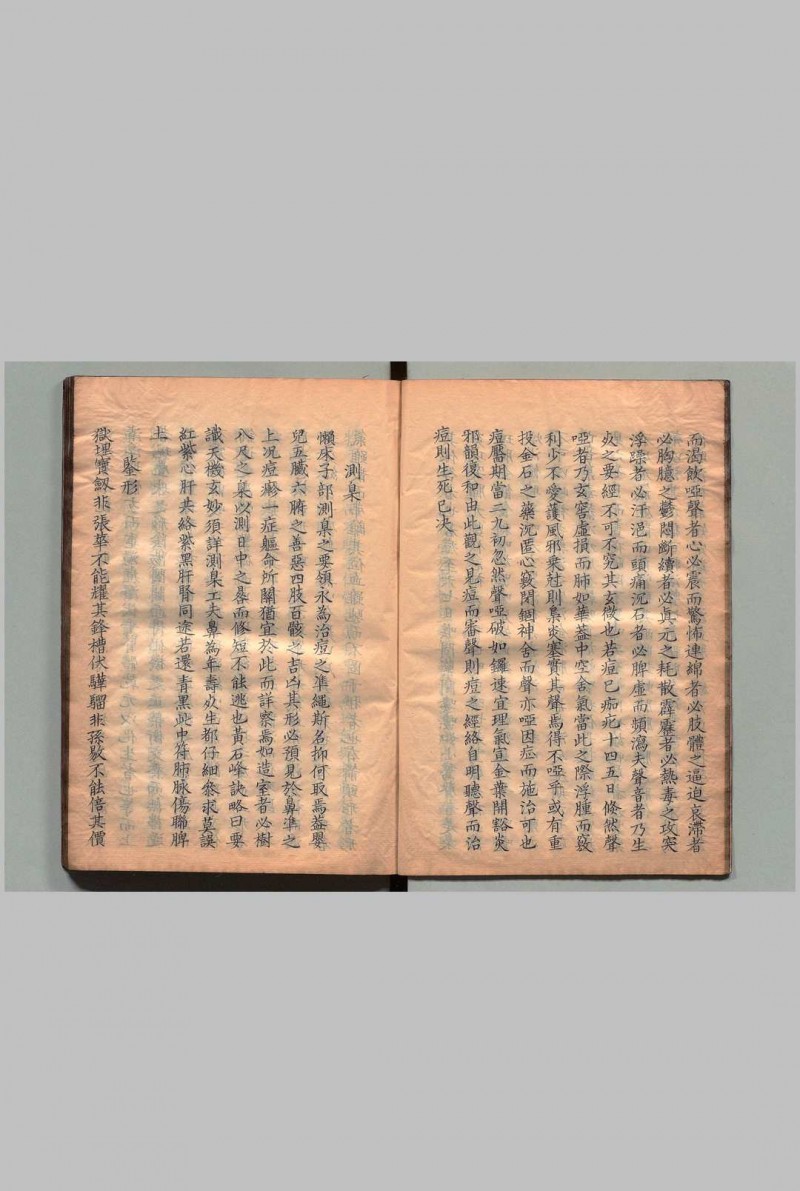 而渴飲啞聲者心必震而驚怖連綿者必肢體之逼迫哀滯者
必胸臆之鬱悶斷續者必真元之耗散霹靂者必熱毒之攻突
浮躁者必汗浥而頭痛沉石者必脾虛而頻瀉夫聲音者乃生
死之要經不可不究其玄微也若痘已痂疕十四五日倏然聲
啞者乃玄窖虛損而肺如華蓋中空舍氣當此之際浮腫而竅
利少不受護風邪乘尅則臬炎塞實其聲焉得不啞乎或有重
投金石之藥沉匿心竅閉錮神舍而聲亦啞因症而施治可也
痘靨期當二九初忽然聲啞破如鑼速宜理氣宣金葉開豁炎
邪韻復和由此觀之見痘而審聲則痘之經絡自明聽聲而治
痘則生死已决
測臬
懶床子部測臬之要領永為治痘之準繩斯名抑何取焉葢嬰
兒五臟六腑之善惡四肢百骸之吉凶其形必預見於鼻準之
上况痘瘮一症軀命所關猶宜於此而詳察焉如造室者必樹
八尺之臬以測日中之晷而修短不能逃也黃石峰訣略曰要
識天機玄妙須詳測臬工夫鼻為年壽死生都仔細叅求莫誤
紅紫心肝共絡紫黑肝腎同途若還青黑疵中符肺脉傷聯脾
土
鑒形
獄埋寶劔非張華不能耀其鋒槽伏驊騮非孫敭不能倍其價